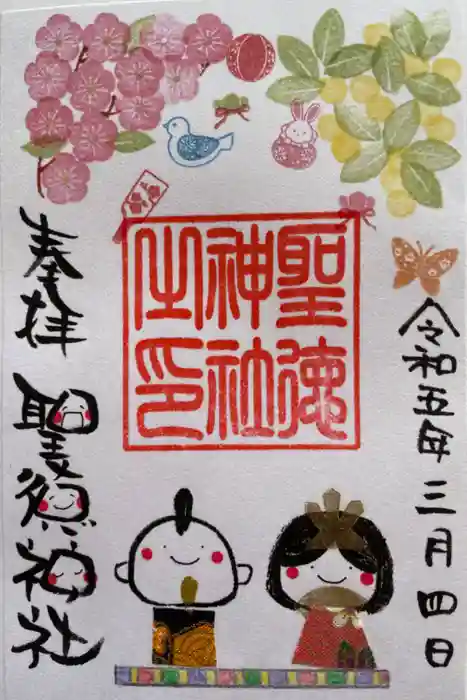 令和五年三月四日
聖徳
神社
之印
奉拝
聖徳神社